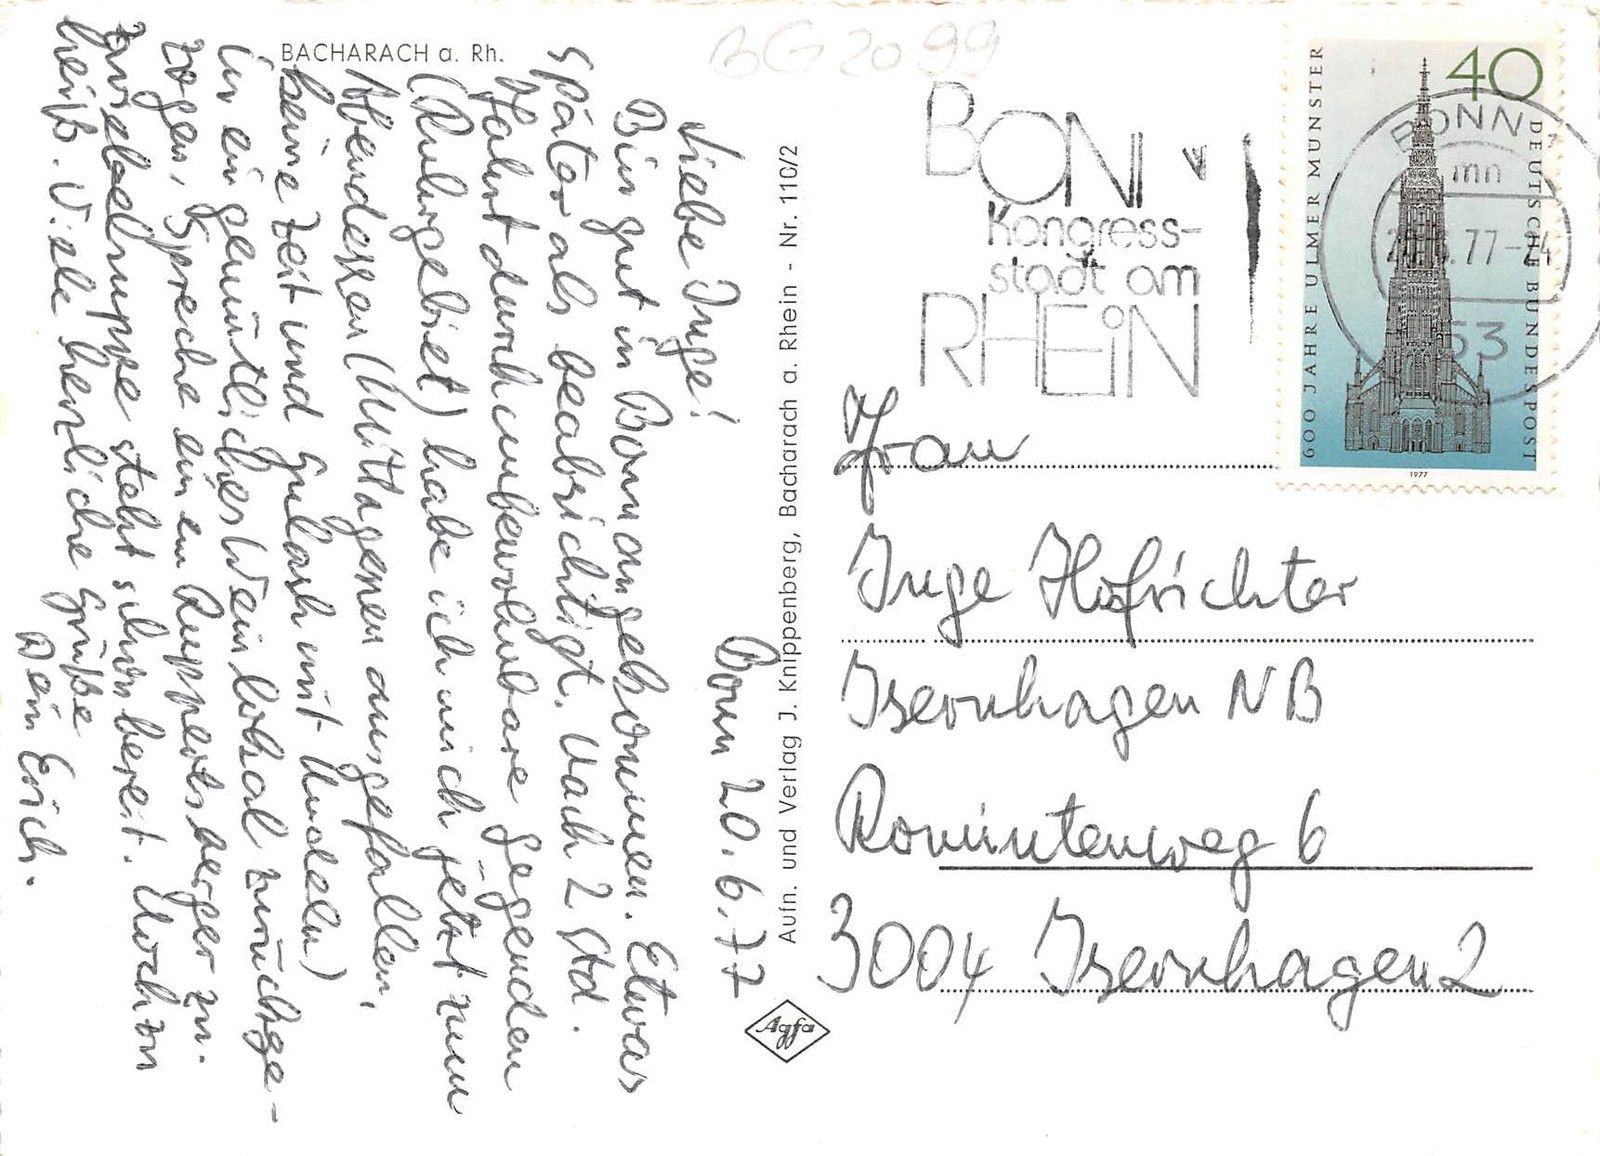 BACHARACH a. Rh.
BG 2099
Bonn 20.6.77
Liebe Inge!
Bin gut in Bonn angekommen. Etwas
später als beabsichtigt. Nach 2 Std.
Fahrt durch unbewohnbare Gegenden
(Ruhrgebiet) habe ich mich jetzt zum
Abendessen (Mittagessen ausgefallen,
keine Zeit und Gulasch mit Nudeln)
in ein gemütliches Weinlokal zurückge-
zogen, Spreche einem Ruppertsberger zu.
Zwiebelsuppe steht schon bereit. Noch zu
heiß. Viele herzliche Grüße
Dein Erich.
Aufn. und Verlag J. Knippenberg, Bacharach a. Rhein - Nr. 110/2
Agfa
BONN
Kongress-
stadt am
RHEIN
40
600 JAHRE ULMER MÜNSTER
DEUTSCHE BUNDESPOST
1977
BONN 1
mn
.77-
53
Frau
Inge Hofrichter
Isernhagen NB
Romintenweg 6
3004 Isernhagen 2